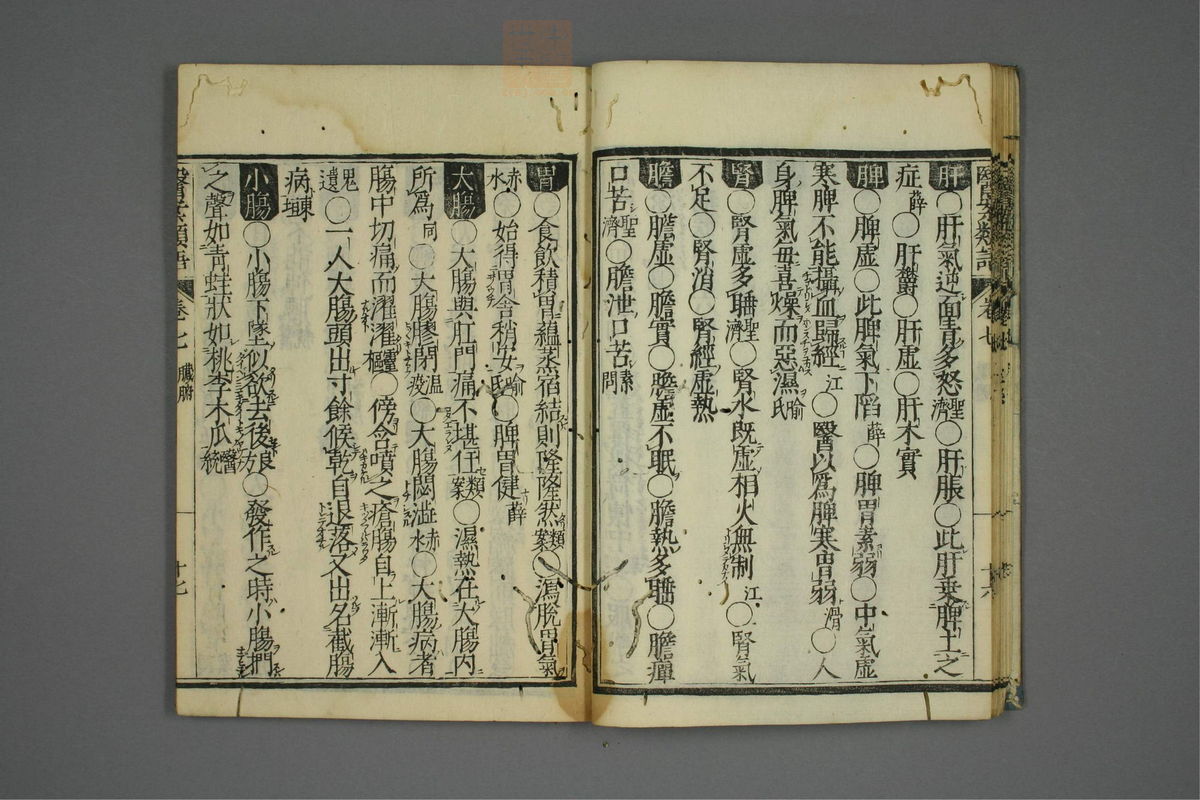 肝○肝氣逆面青多怒聖濟○肝脹○此肝乗脾土之
症薛○肝欝○肝虚○肝木實
脾○脾虚○此脾氣下陷薛○脾胃素弱○中氣虚
寒脾不能攝血歸經江○醫以爲脾寒胃弱滑○人
身脾氣毎喜燥而惡濕喻氏
腎○腎虚多聖濟○腎水既虚相火無制江○腎氣
不足○腎消○腎經虚熱
膽○膽虚○膽實○膽虚不眠○膽熱多○膽癉
口苦聖濟○膽泄口苦素問
卷七
十六
胃○食飲積胃蘊蒸宿結則隆隆然類案○瀉脫胃氣
赤水○始得胃舎稍安喻氏○脾胃健薛
大腸○大腸與肛門痛不堪任類案○濕熱在大腸内
所爲同○大腸膠閉温疫○大腸悶澁赤水○大腸病者
腸中切痛而濯濯靈樞○傍含噴之瘡腸自上漸漸入
鬼遺○一人大腸頭出寸餘候乾自退落又出名截腸
病
小腸○小腸下墜似欲去後娘○發作之時小腸捫
之聲如青蛙狀如桃李木瓜醫統
卷七 臟腑
十七